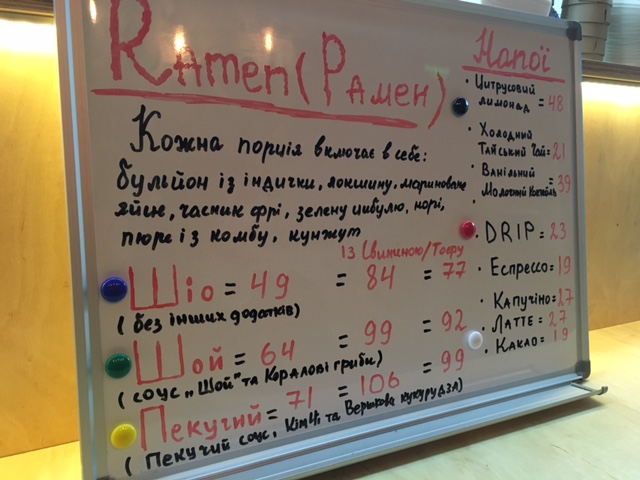 Ramen (Рамен)
Кожна порція включає в себе:
бульйон із індички, локшину, мариноване
яйце, часник фрі, зелену цибулю, норі,
пюре із комбу, кунжут
Із Свининою/Тофу
Шіо = 49 = 84 = 77
(без інших додатків)
Шой = 64 = 99 = 92
(соус „Шой" та Коралові гриби)
Пекучий = 71 = 106 = 99
(Пекучий соус, Кімчі та Вершкова кукурудза)
Напої
• Цитрусовий
лимонад = 48
• Холодний
Тайський Чай = 21
• Ванільний
Молочний Коктейль = 39
• DRIP = 23
• Еспрессо = 19
• Капучіно = 27
• Латте = 27
• Какао = 19